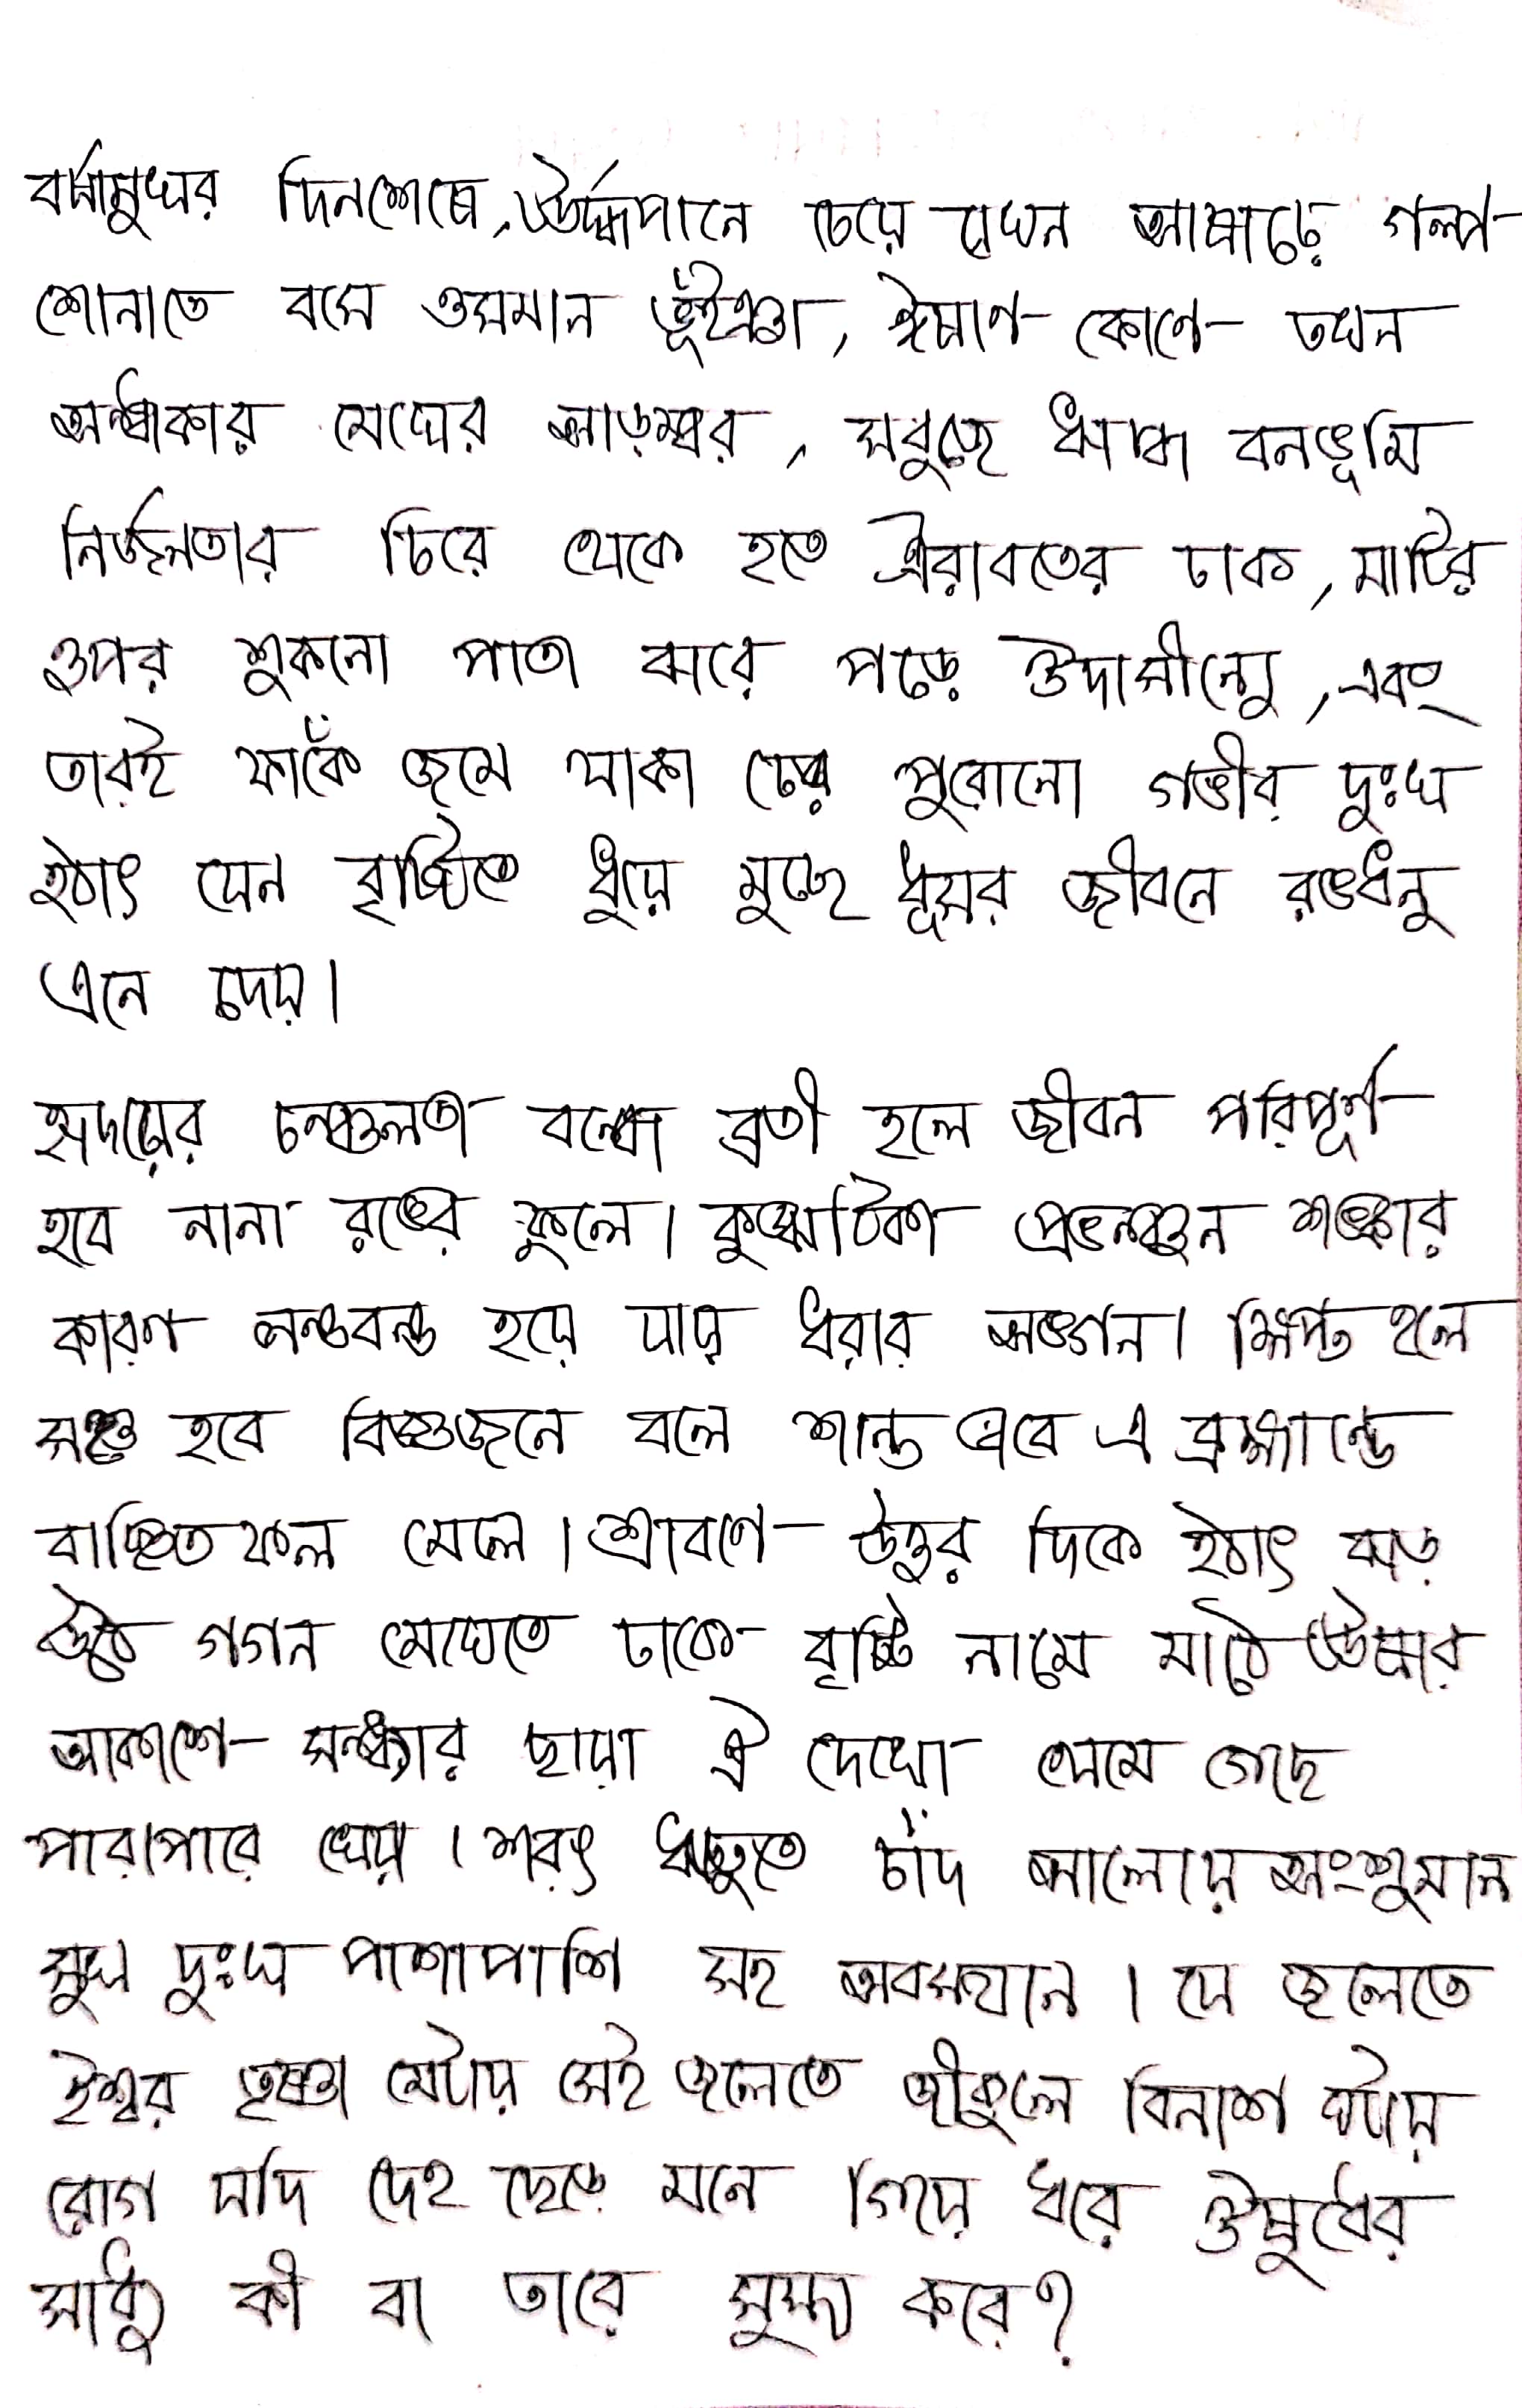 বর্ষামুখর দিনশেষে, ঊর্দ্ধপানে চেয়ে যখন আষাঢ়ে গল্প
শোনাতে বসে ওসমান ভূঁইঞা, ঈষাণ কোণে তখন
অন্ধকার মেঘের আড়ম্বর, সবুজে ঋদ্ধ বনভূমি
নির্জনতার চিরে থেকে হতে ঐরাবতের ঢাক, মাটির
ওপর শুকনো পাতা ঝরে পড়ে ঔদাসীন্যে, এবং
তারই ফাঁকে জমে থাকা ঢের পুরোনো গভীর দুঃখ
হঠাৎ যেন বৃষ্টিতে ধুয়ে মুছে ধূসর জীবনে রঙধনু
এনে দেয়।
হৃদয়ের চঞ্চলতা বন্ধে ব্রতী হলে জীবন পরিপূর্ণ
হবে নানা রঙের ফুলে। কুজ্ঝটিকা প্রভঞ্জন শঙ্কার
কারণ লন্ডবন্ড হয়ে যায় ধরার অঙ্গন। ক্ষিপ্ত হলে
সাঙ্গ হবে বিজ্ঞজনে বলে শান্ত হবে এ ব্রহ্মান্ডে
বাঞ্ছিতফল মেলে। শ্রাবণে উত্তর দিকে হঠাৎ ঝড়
উঠে গগন মেঘেতে ঢাকে বৃষ্টি নামে মাঠে ঊষার
আকাশে সন্ধ্যার ছায়া ঐ দেখো থেমে গেছে
পারাপারে খেয়া। শরৎ ঋতুতে চাঁদ আলোয় অংশুমান
সুখ দুঃখ পাশাপাশি সহ অবস্থান। যে জলেতে
ঈশ্বর তৃষ্ণা মেটায় সেই জলেতে জীকুলে বিনাশ ঘটায়
রোগ যদি দেহ ছেড়ে মনে গিয়ে ধরে ঔষুধের
সাধ্য কী বা তারে সুস্থ করে?